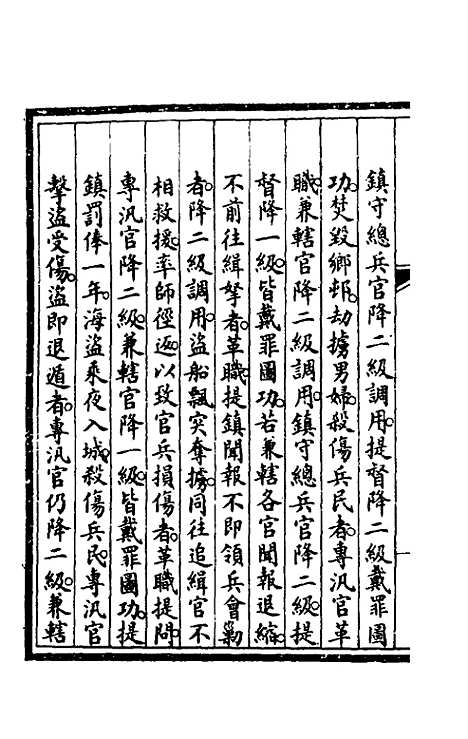 鎮守總兵官降二級調用。提督降二級戴罪圖
功。焚毀鄉邨。劫擄男婦。殺傷兵民者。專汛官革
職。兼轄官降二級調用。鎮守總兵官降二級。提
督降一級。皆戴罪圖功。若兼轄各官聞報退縮。
不前往緝拏者。革職。提鎮聞報不即領兵會勦
者。降二級調用。盜船飄突奪擄。同往追緝官不
相救援。率師徑返。以致官兵損傷者。革職提問。
專汛官降二級。兼轄官降一級。皆戴罪圖功。提
鎮罰俸一年。海盜乘夜入城。殺傷兵民。專汛官
擊盜受傷。盜即退遁者。專汛官仍降二級。兼轄